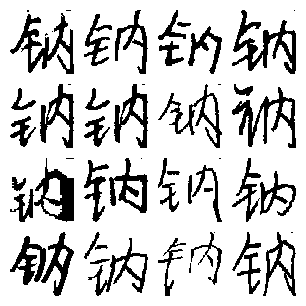 钠钠钠钠
钠钠钠
钠钠钠钠
钠钠钠钠